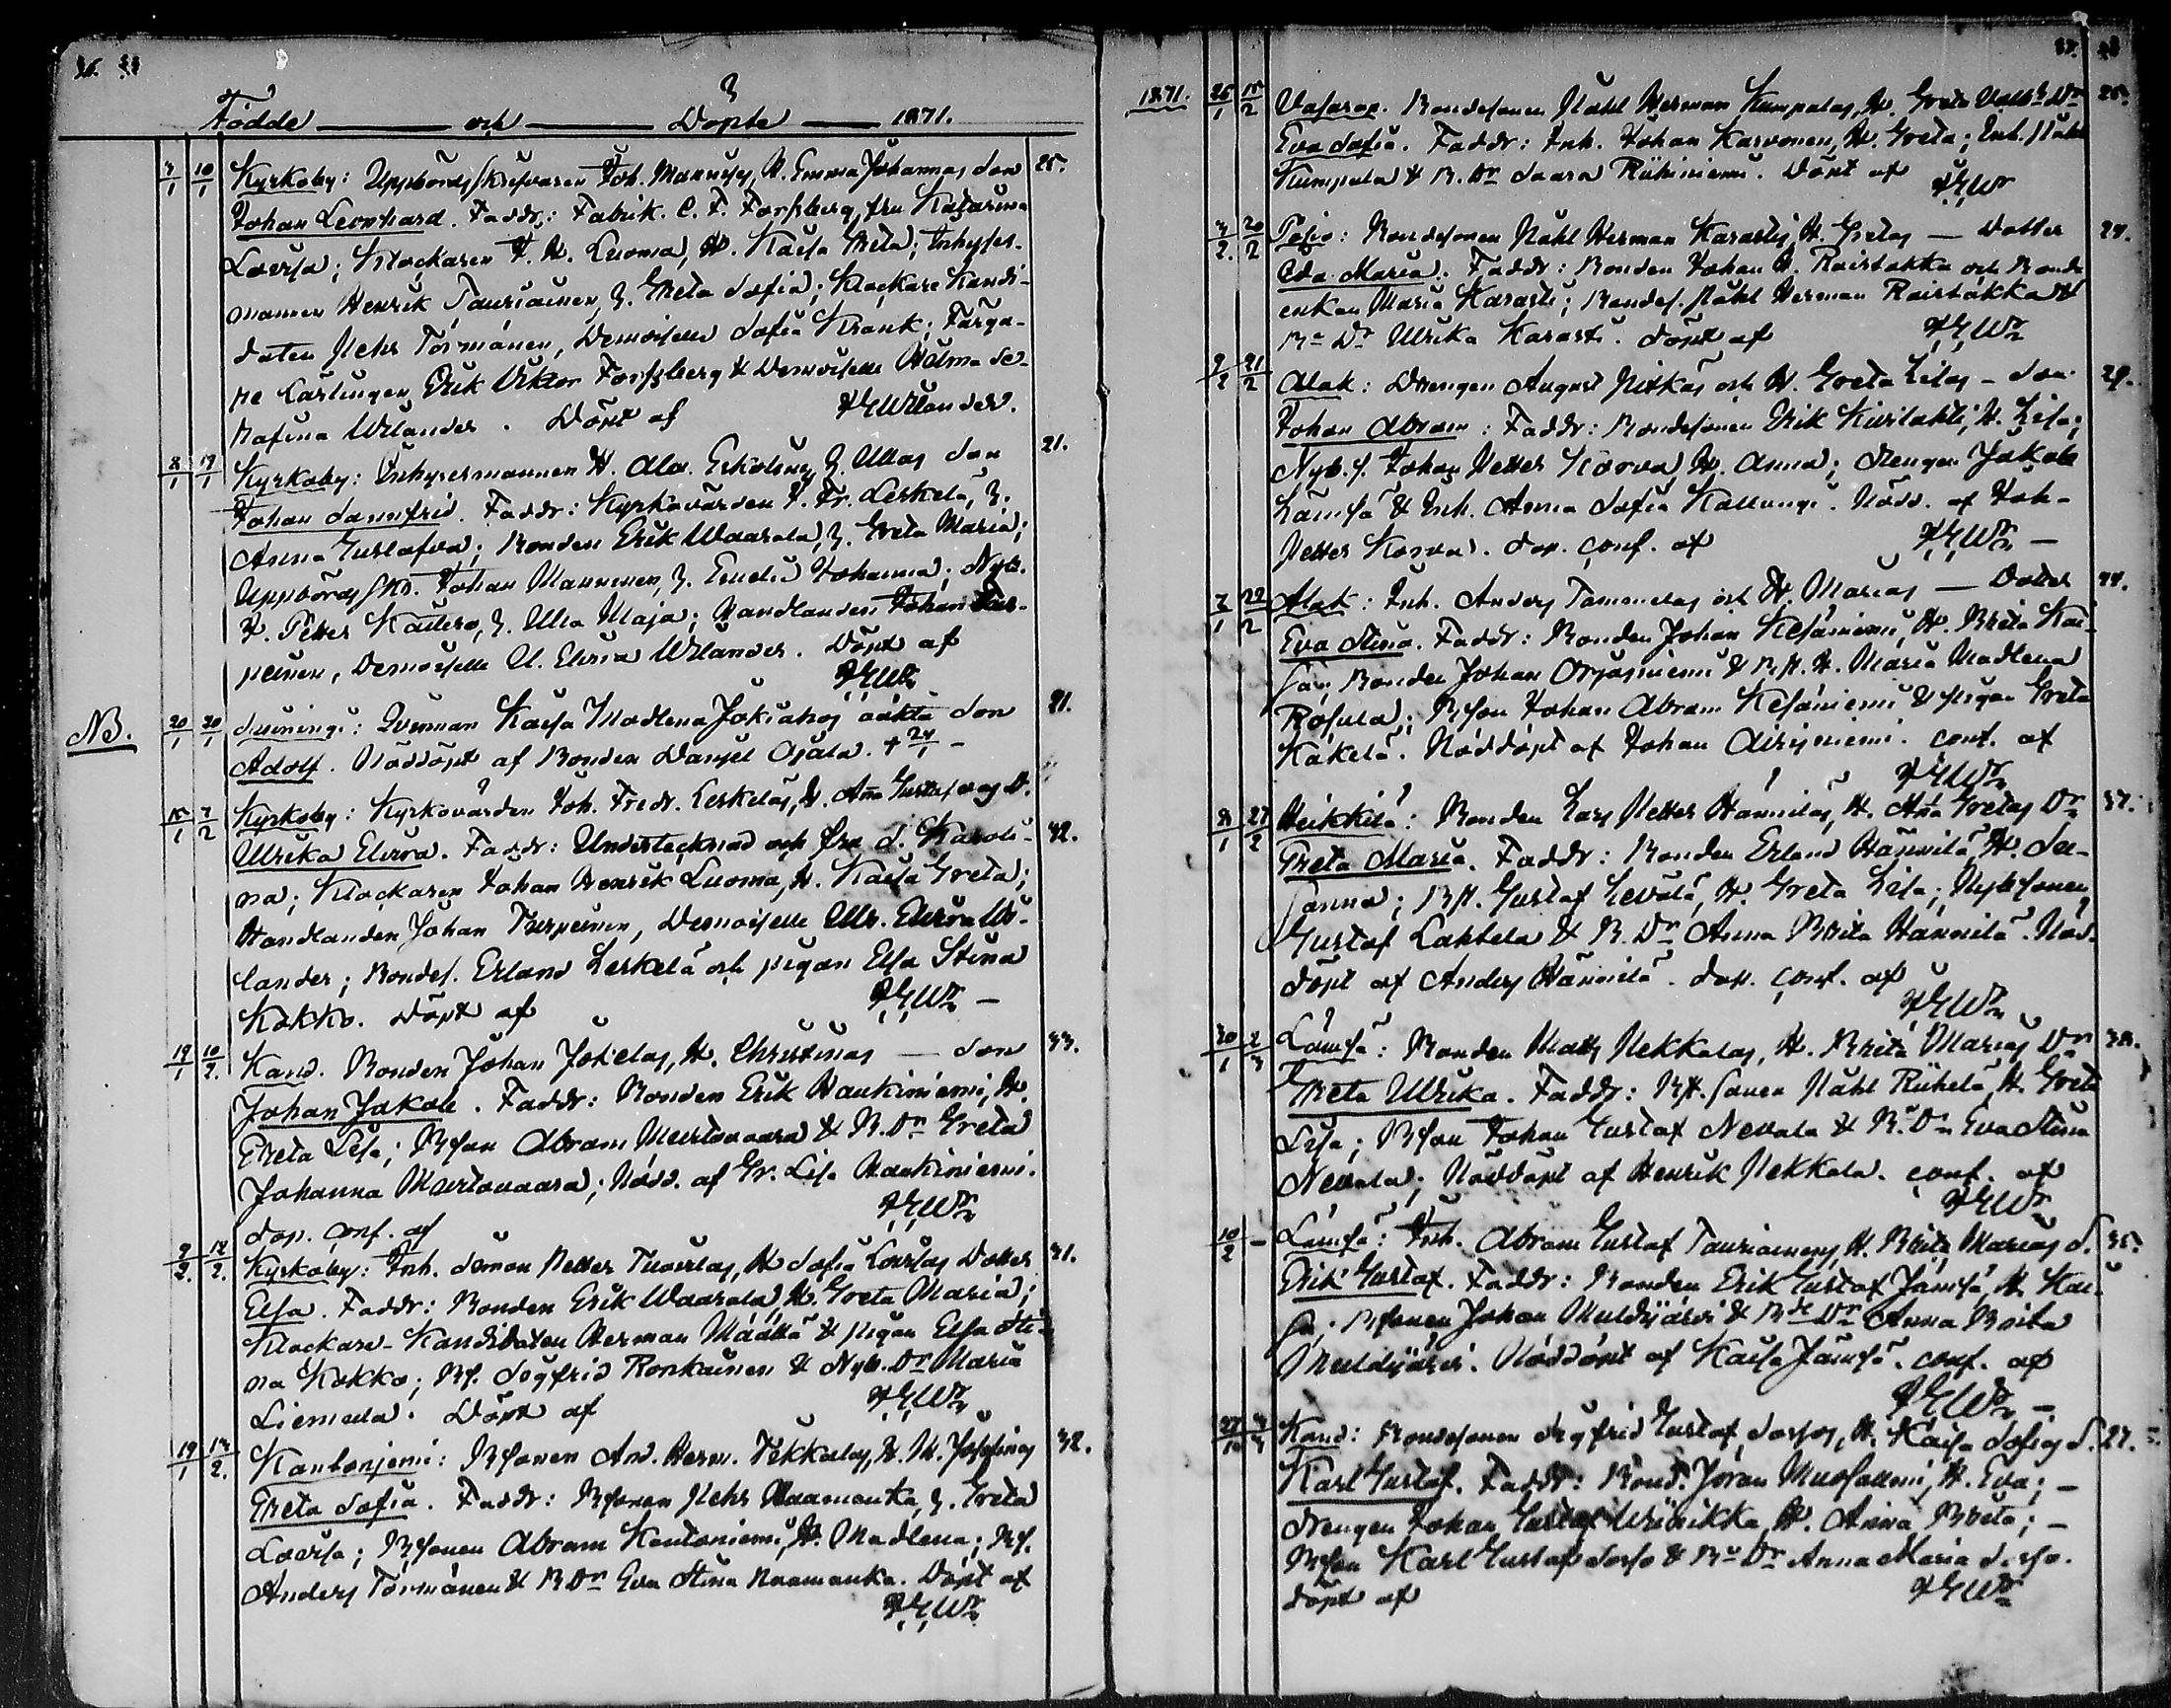 Födde och Döpte 1871.
7/1 10/1 Kyrkoby: Uppbördsskrifvaren Joh. Mannises, H. Emma Johannas Son 25.
Johan Leonhard. Faddr.: Fabrik. C. F. Forssberg, fru Katarina
Lovisa; Klockaren J. H. Luoma, H. Kaisa Greta; Inhyses-
mannen Henrik Tauriainen, H. Greta Sofia; Klockare Kandi-
daten Pehr Törmänen, Demoiselle Sofia Krank; Färga-
re Lärlingen Erik Viktor Forssberg & Demoiselle Hilma Se-
rafina Wilander. Döpt af JEWilander.
8/1 17/1 Kyrkoby: Inhysesmannen H. Alex. Erkolas, H. Ullas Son 21.
Johan Sannfrid. Faddr: Kyrkovärden J. Fr. Leskelä, H.
Anna Gustafva; Bonden Erik Waarala, H. Greta Maria;
Uppbördsskr. Johan Manninen, H. Emelie Johanna; Nyb.
J. Petter Käiterö, H. Ulla Maja; Handlanden Johan Tur-
peinen, Demoiselle U. Elvira Wilander. Döpt af
JEWr
NB. 20/1 20/1 Suiningi: Qvinnan Kaisa Madlena Jokiahos oäkta Son 21.
Adolf. Nöddöpt af Bonden Daniel Ojala. + 24/1 -
15/1 7/2 Kyrkoby: Kyrkovärden Joh. Fredr. Leskeläs, H. Anna Gustafvas D.
Ulrika Elvira. Faddr: Undertecknad och fru S. Karoli- 42.
na; Klockaren Johan Henrik Luoma, H. Kaisa Greta;
Handlanden Johan Turpeinen, Demoiselle Ulr. Elvira Wi-
lander; Bondes. Erland Leskelä och pigan Elsa Stina
Kokko. Döpt af JEWr -
19/1 10/2. Kand. Bonden Johan Jokelas, H. Christinas — Son 33.
Johan Jakob. Faddr: Bonden Erik Haukiniemi, H.
Greta Lisa; Bson Abram Murtovaara & B. Dr Greta
Johanna Murtovaara; Nödd. af Gr. Lisa Haukiniemi.
Dop. conf. af JEWr
2/2. 12/2. Kyrkoby: Inh. Simon Petter Tuovilas, H Sofia Lovisas Dotter 31.
Elsa. Faddr: Bonden Erik Waarala, H. Greta Maria;
Klockare-Kandidaten Herman Määttä & pigan Elsa Sti-
na Kokko; Bs. Sigfrid Ronkainen & Nyb. Dr Maria
Liemula. Döpt af JEWr
19/1 13/2. Kantoniemi: Bsonen And. Herm. Pekkalas, H. M. Josefinas 32.
Greta Sofia. Faddr: Bsonen Pehr Naamanka, H. Greta
Lovisa; Bsonen Abram Kantoniemi, H. Madlena; Bs.
Anders Törmänen & B Dr Eva Stina Naamanka. Döpt af
JEWr
1871. 26/1 15/2 Vasarap. Bondesonen Påhl Herman Kumpulas, H. Greta Valb: Dr 25.
Eva Sofia. Faddr: Inh. Johan Karvonen, H. Greta; Inh. Påhl
Kumpula & B. Dr Saara Riihiniemi. Döpt af JEWr
4/2. 20/2 Posio: Bondesonen Påhl Herman Karastis, H. Gretas — Dotter 27.
Eda Maria. Faddr: Bonden Johan H. Raistakka och Bonde
enkan Maria Karasti; Bondes. Påhl Herman Raistakka &
Be Dr Ulrika Karasti. Döpt af JEWr
9/2 21/2 Alak: Drengen August Pitkäs och H. Greta Lisas - Son 29.
Johan Abram: Faddr: Bondesonen Erik Kurtakti, H. Lisa;
Nyb. s. Johan Petter Korva, H. Anna; Drengen Jakob
Lämsä & Inh. Anna Sofia Kallungi. Nödd. af Joh-
Petter Korva. Dop. conf. af JEWr —
7/1 22/2 Alak: Inh. Anders Tammelas och H. Marias — Dotter 44.
Eva Stina. Faddr: Bonden Johan Kesäniemi, H. Brita Kai-
sa; Bonden Johan Orjasniemi & B.H. H. Maria Madlena
Rosula; Bson Johan Abram Kesäniemi & Pigan Greta
Käkelä. Nöddöpt af Johan Airisniemi. conf. af
JEWr
8/1 27/2 Heikkilä: Bonden Lars Petter Hänniläs, H. Anna Gretas Dr 37.
Greta Maria. Faddr: Bonden Erland Hännilä, H. Su-
sanna; B.H. Gustaf Levälä, H. Greta Lisa; Nybsonen
Gustaf Lahtela & B. Dr Anna Brita Hännilä. Nöd-
döpt af Anders Hännilä. Dop. conf. af
JEWr
30/1 2/3 Lämsä: Bonden Matts Pekkalas, H. Brita Marias Dr 38.
Greta Ulrika. Faddr: Bh. sonen Påhl Riihelä, H. Greta
Lisa; Bson Johan Gustaf Nevala & B. Dr Eva Stina
Nevala; Nöddöpt af Henrik Pekkala. conf. af
JEWr
10/2 - Lämsä: Inh. Abram Gustaf Tauriainens, H. Brita Marias S. 35.
Erik Gustaf. Faddr: Bonden Erik Gustaf Jämsä, H Kai-
sa. Bsonen Johan Multijärvi & Bde Dr Anna Brita
Multijärvi. Nöddöpt af Kaisa Jämsä. conf. af
JEWr —
Kand: Bondesonen Sigfrid Gustaf Sorsas, H. Kaisa Sofias S. 27.
Karl Gustaf. Faddr: Bond. Jöran Mursuniemi, H. Eva; —
Drengen Johan Gustaf Virikka, H. Anna Brita; —
Bson Karl Gustaf Sorsa & Be Dr Anna Maria Sorsa.
Döpt af JEWr